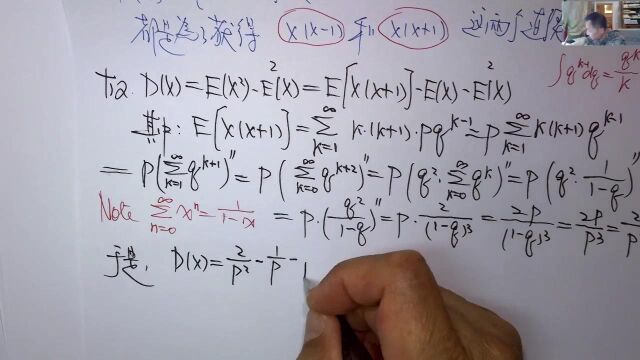 都是为了获得 X(X-1) 和 X(X+1) 这两个连
法2. D(X)=E(X²)-E²(X)=E[X(X+1)]-E(X)-E²(X)
∫q^{k-1}dq=q^k/k
其中: E[X(X+1)]=∑_{k=1}^{∞} k·(k+1)·pq^{k-1}=p∑_{k=1}^{∞} k(k+1)q^{k-1}
=p(∑_{k=1}^{∞} q^{k+1})″=p(∑_{k=0}^{∞} q^{k+2})″=p(q²·∑_{k=0}^{∞} q^k)″=p(q²·1/(1-q))″
Note ∑_{n=0}^{∞} x^n=1/(1-x) =p·(q²/(1-q))″=p·2/(1-q)³=2p/(1-q)³=2p/p³=2
于是, D(X)=2/p²-1/p-